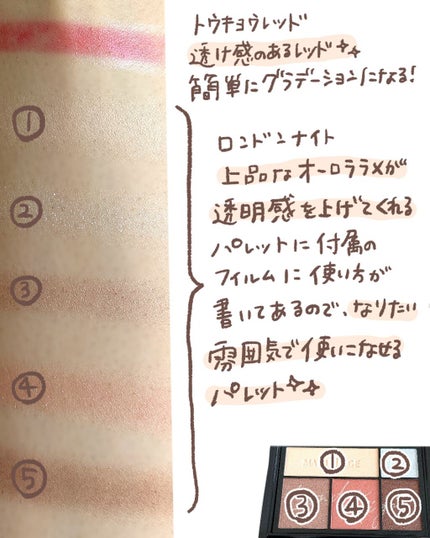 トウキョウレッド
透け感のあるレッド✨
簡単にグラデーションになる!
①
②
③
④
⑤
ロンドンナイト
上品なオーロララメが
透明感を上げてくれる
パレットに付属の
フィルムに使い方が
書いてあるので、なりたい
雰囲気で使いこなせる
パレット✨
①
②
③
④
⑤